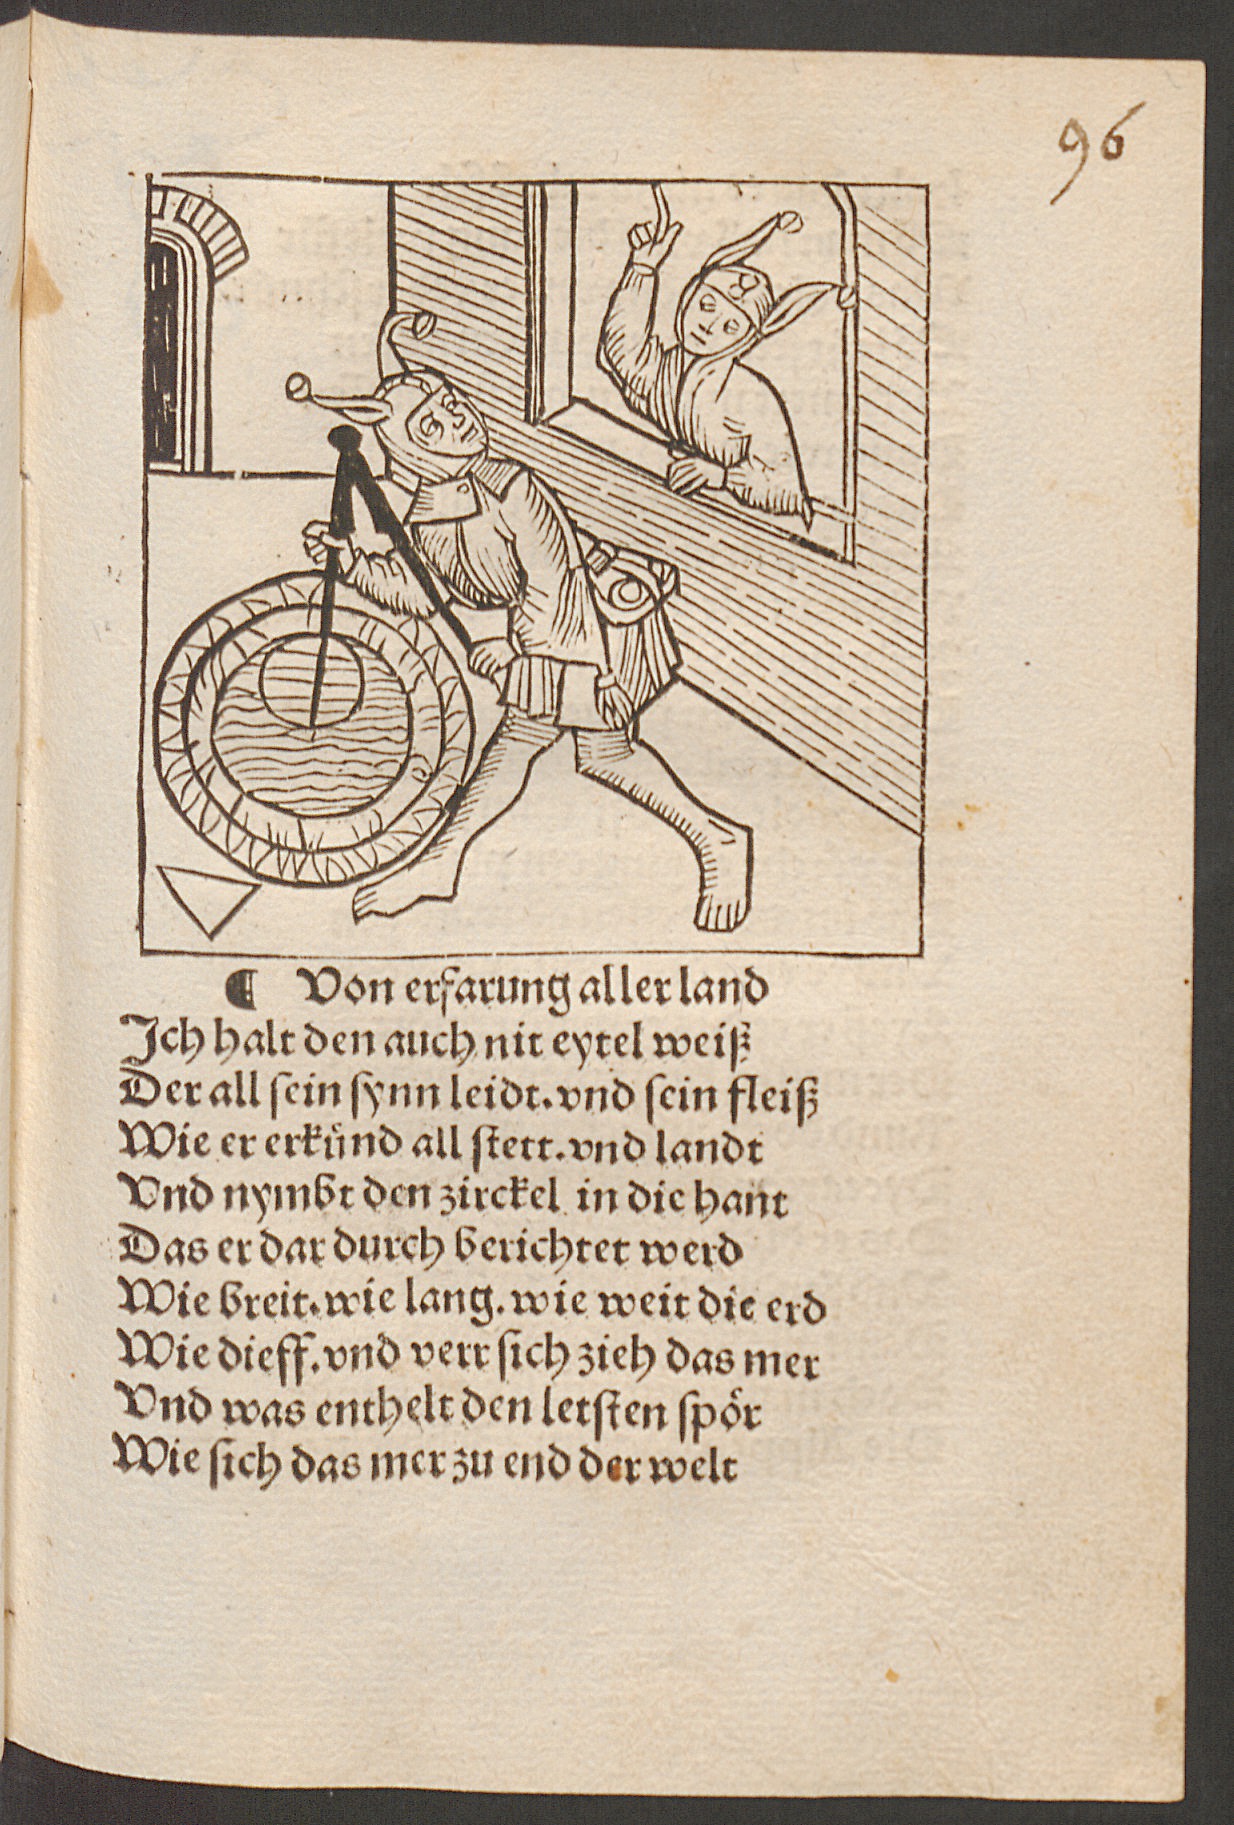 96
¶ Von erfarung aller land
Ich halt den auch nit eytel weiß
Der all sein synn leidt. vnd sein fleiß
Wie er erkünd all stett. vnd landt
Vnd nymbt den zirckel in die hant
Das er dar durch berichtet werd
Wie breit. wie lang. wie weit die erd
Wie dieff. vnd verr sich zieh das mer
Vnd was enthelt den letsten spör
Wie sich das mer zu end der welt